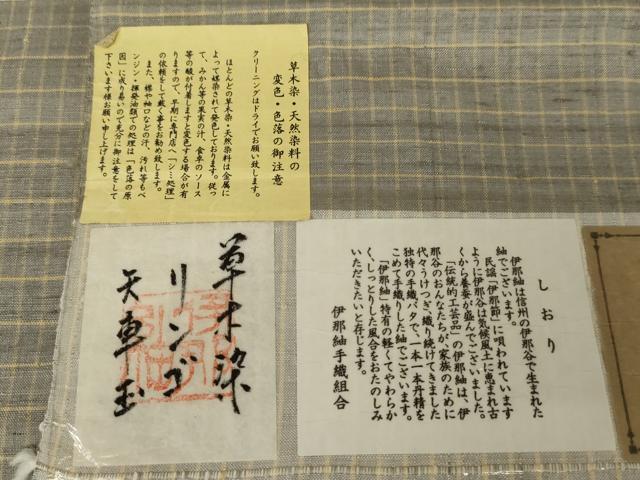 草木染・天然染料の
変色・色落の御注意
クリーニングはドライでお願い致します。
ほとんどの草木染・天然染料は金属に
よって媒染されて発色しております。従っ
て、みかん等の果実の汁、食卓のソース
等の酸が付着しますと変色する場合が有
りますので、早期に専門店へ「シミ処理」
の依頼をして戴く事をお勧め致します。
また、襟や袖口などの汗、汚れ等もベ
ンジン・揮発油類での処理は「色落の原
因」に成り易いので充分に御注意をして
下さいます様お願い申し上げます。
草木染
リンゴ
天蚕玉
しおり
伊那紬は信州の伊那谷で生まれた
紬でございます。
民謡「伊那節」に唄われています
ように伊那谷は気候風土に恵まれ古
くから養蚕が盛んでございました。
「伝統的工芸品」の伊那紬は、伊
那谷のおんなたちが、家族のために
代々うけつぎ、織り続けてきました
独特の手織バタで、一本一本丹精を
こめて手織りした紬でございます。
「伊那紬」特有の軽くてやわらか
く、しっとりした風合をおたのしみ
いただきたいと存じます。
伊那紬手織組合